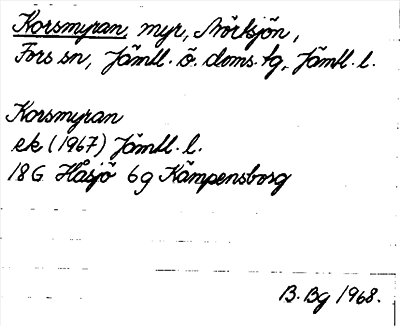 Korsmyran myr, Mörtsjön,
Fors sn, Jämtl. ö. doms. tg, Jämtl. l.
Korsmyran
ek (1967) Jämtl. l.
18G Hasjö 6g Kämpensborg
B. Bg 1968.